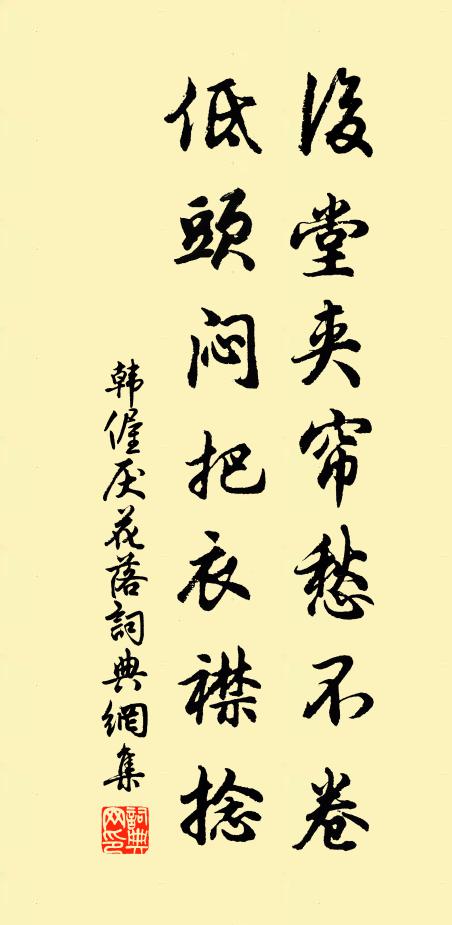 後堂夹帘愁不卷
低頭闷把衣襟捻
韩偓厌花落詞典網集
詞典
网印